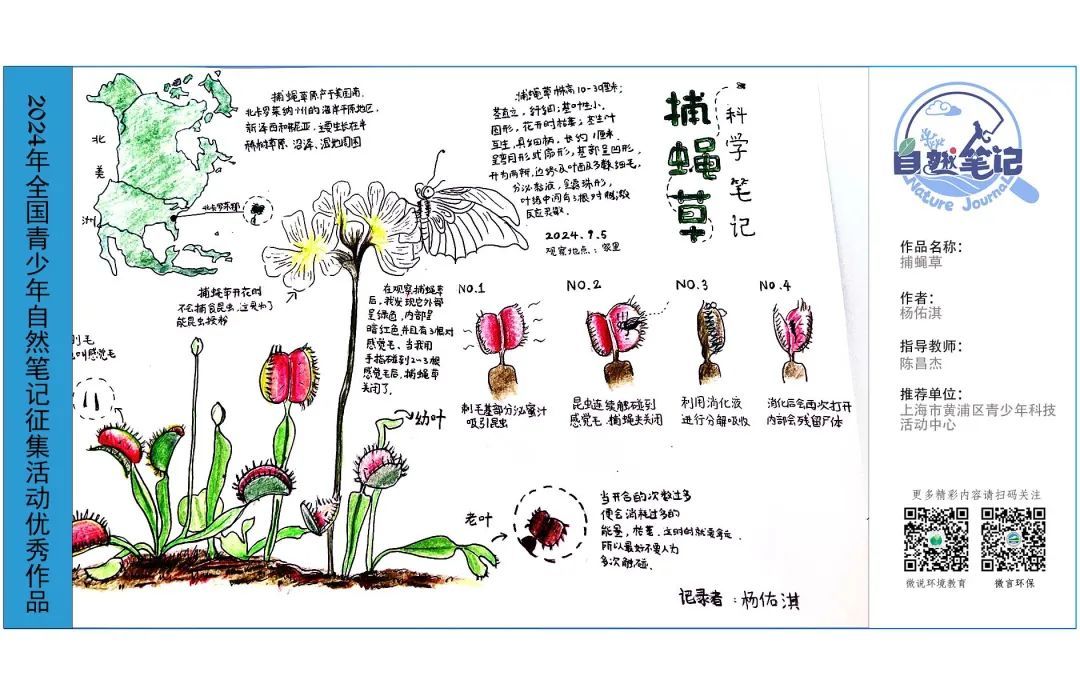 2024年全国青少年自然笔记征集活动优秀作品
北
美
洲
捕蝇草原产于美国南、
北卡罗莱纳州的海岸平原地区,
新泽西和
主要生长在半
稀树草原、沼泽、湿地周围
北卡罗来纳
捕蝇草株高10-30厘米;
茎直立,纤细;基叶
圆形,花开时枯萎;茎生叶
互生,具细柄,长约1厘米.
呈弯月形或扇形,基部呈凹形,
开为两瓣,边缘及叶面及多数细毛,
分泌黏液,呈露珠形,
叶缘中间有3根对触激
反应灵敏.
2024.9.5
观察地点:家里
捕蝇草
科学笔记
捕蝇草开花时
不会捕食昆虫,这是为了
能昆虫授粉
在观察捕蝇草
后,我发现它外部
呈绿色,内部呈
暗红色,并且有3根对
感觉毛、当我用
手指碰到2~3根
感觉毛后,捕蝇草
关闭了.
NO.1
刺毛基部分泌蜜汁
吸引昆虫
NO.2
昆虫连续触碰到
感觉毛,捕蝇夹关闭
NO.3
利用消化液
进行分解吸收
NO.4
消化后会再次打开
内部会残留尸体
刺毛
叫感觉毛
幼叶
老叶
当开合的次数过多
便会消耗过多的
能量,枯萎.
所以最好不要人为
多次触碰.
记录者:杨佑淇
自然笔记
Nature Journal
作品名称:
捕蝇草
作者:
杨佑淇
指导教师:
陈昌杰
推荐单位:
上海市黄浦区青少年科技
活动中心
更多精彩内容请扫码关注
微说环境教育
微言环保